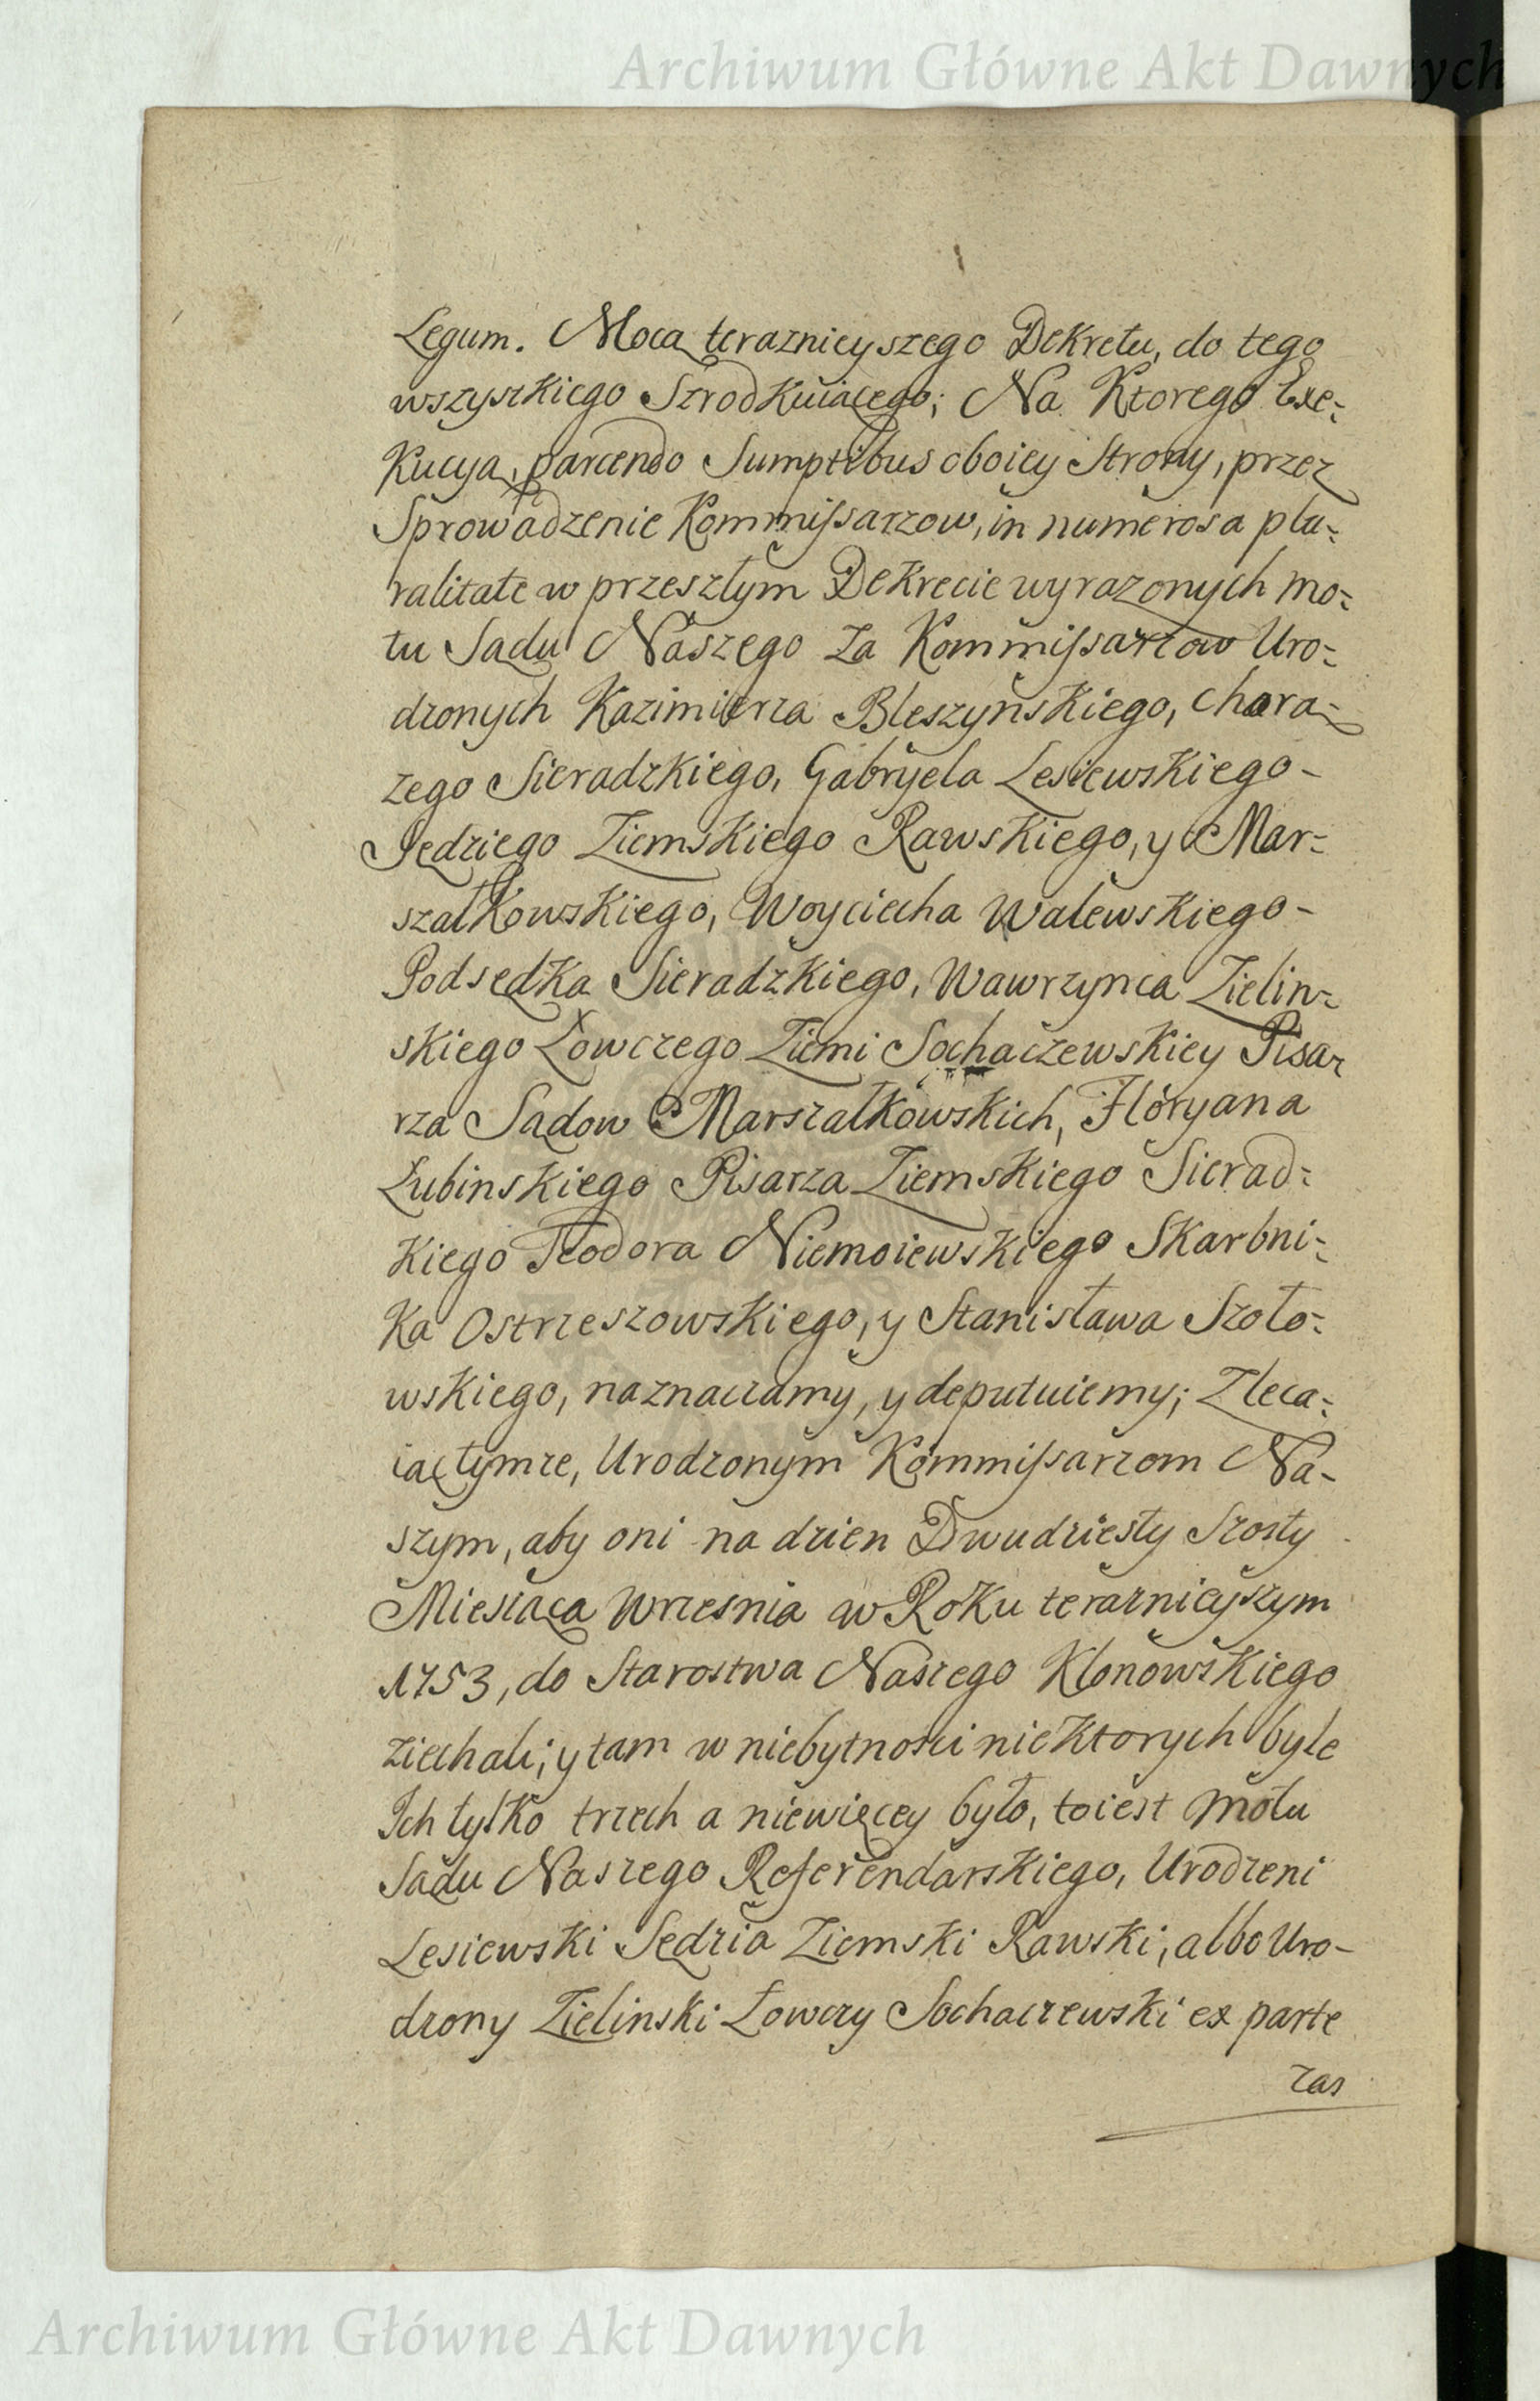 Archiwum Główne Akt Dawnych
Legum. Mocą teraznieyszego Dekretu, do tego
wszyskiego Szrodkuiącego; Na Ktorego Exe-
Kucyą, parcendo Sumptibus oboiey Strony, przez
Sprowadzenie Kommissarzow, in numerosa plu-
ralitate w przeszłym Dekrecie wyrazonych mo-
tu Sądu Naszego za Kommissarzow Uro-
dzonych Kazimierza Bleszynskiego, Chorą-
zego Sieradzkiego, Gabryela Lesiewskiego-
Sędziego Ziemskiego Rawskiego, y Mar-
szałkowskiego, Woyciecha Walewskiego-
Podsędka Sieradzkiego, Wawrzynca Zielin-
skiego Łowczego Ziemi Sochaczewskiey Pisar
rza Sądow Marszałkowskich, Floryana
Łubinskiego Pisarza Ziemskiego Sierad-
Kiego Teodora Niemoiewskiego Skarbni-
Ka Ostrzeszowskiego, y Stanisława Szoło-
wskiego, naznaczamy, y deputuiemy; Zleca-
iąc tymze, Urodzonym Kommissarzom Na-
szym, aby oni na dzien Dwudziesty Szosty
Miesiąca Wrzesnia w Roku teraznieyszym
1753, do Starostwa Naszego Klonowskiego
ziechali; y tam w niebytnosci niektorych byle
Ich tylko trzech a niewięcey było, toiest motu
Sądu Naszego Referendarskiego, Urodzeni
Lesiewski Sędzia Ziemski Rawski, albo Uro-
dzony Zielinski Łowczy Sochaczewski ex parte
zas
Archiwum Główne Akt Dawnych